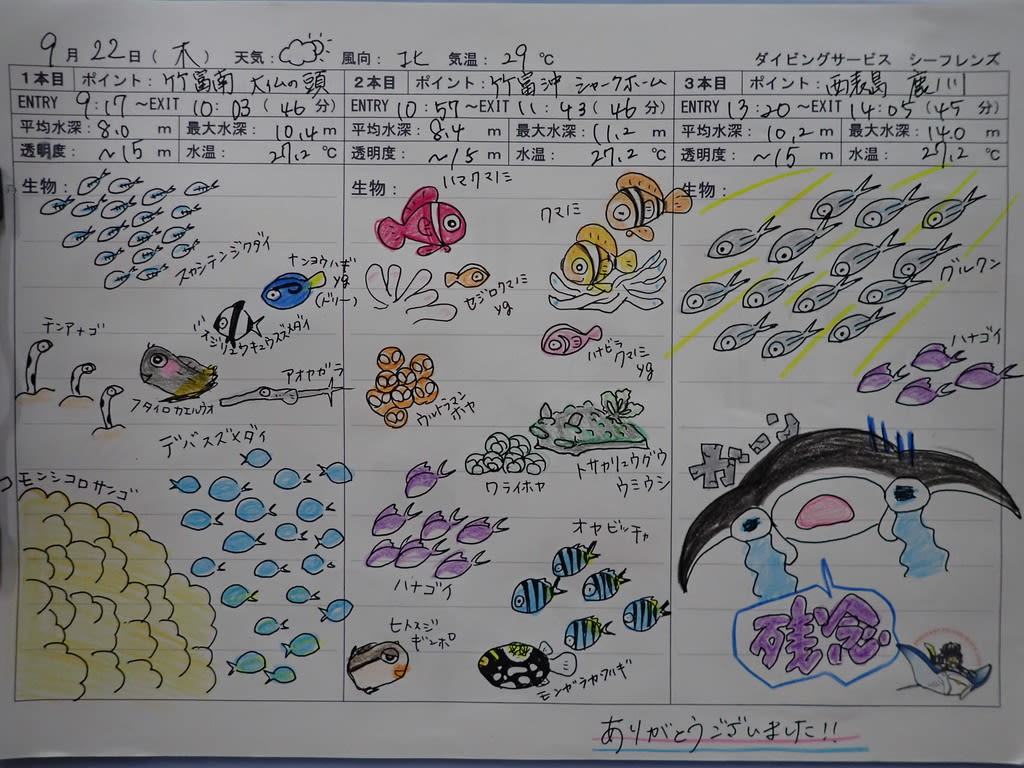 9月22日(木) 天気: 風向: 北 気温: 29℃ ダイビングサービス シーフレンズ
1本目 ポイント: 竹富南 大仏の頭
ENTRY 9:17 ~EXIT 10:03 (46分)
平均水深: 8.0 m 最大水深: 10.4 m
透明度: ~15 m 水温: 27.2 ℃
生物:
スカシテンジクダイ
ナンヨウハギ
yg
(ドリー)
スジリュウキュウスズメダイ
チンアナゴ
フタイロカエルウオ
アオヤガラ
デバスズメダイ
コモンシコロサンゴ
2本目 ポイント: 竹富沖 シャークホーム
ENTRY 10:57 ~EXIT 11:43 (46分)
平均水深: 8.4 m 最大水深: 11.2 m
透明度: ~15 m 水温: 27.2 ℃
生物:
ハマクマノミ
クマノミ
セジロクマノミ
yg
ハナビラ
クマノミ
yg
ウルトラマン
ホヤ
ワライホヤ
トサカリュウグウ
ウミウシ
ハナゴイ
オヤビッチャ
ヒトスジ
ギンポ
モンガラカワハギ
3本目 ポイント: 西表島 鹿ノ川
ENTRY 13:20 ~EXIT 14:05 (45分)
平均水深: 10.2 m 最大水深: 14.0 m
透明度: ~15 m 水温: 27.2 ℃
生物:
グルクン
ハナゴイ
ガーン
残念
ありがとうございました!!